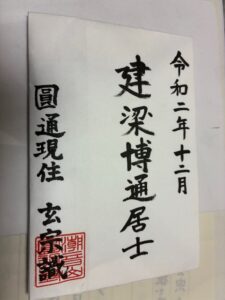 令和二年十二月
建梁博通居士
圓通現住 玄宗識